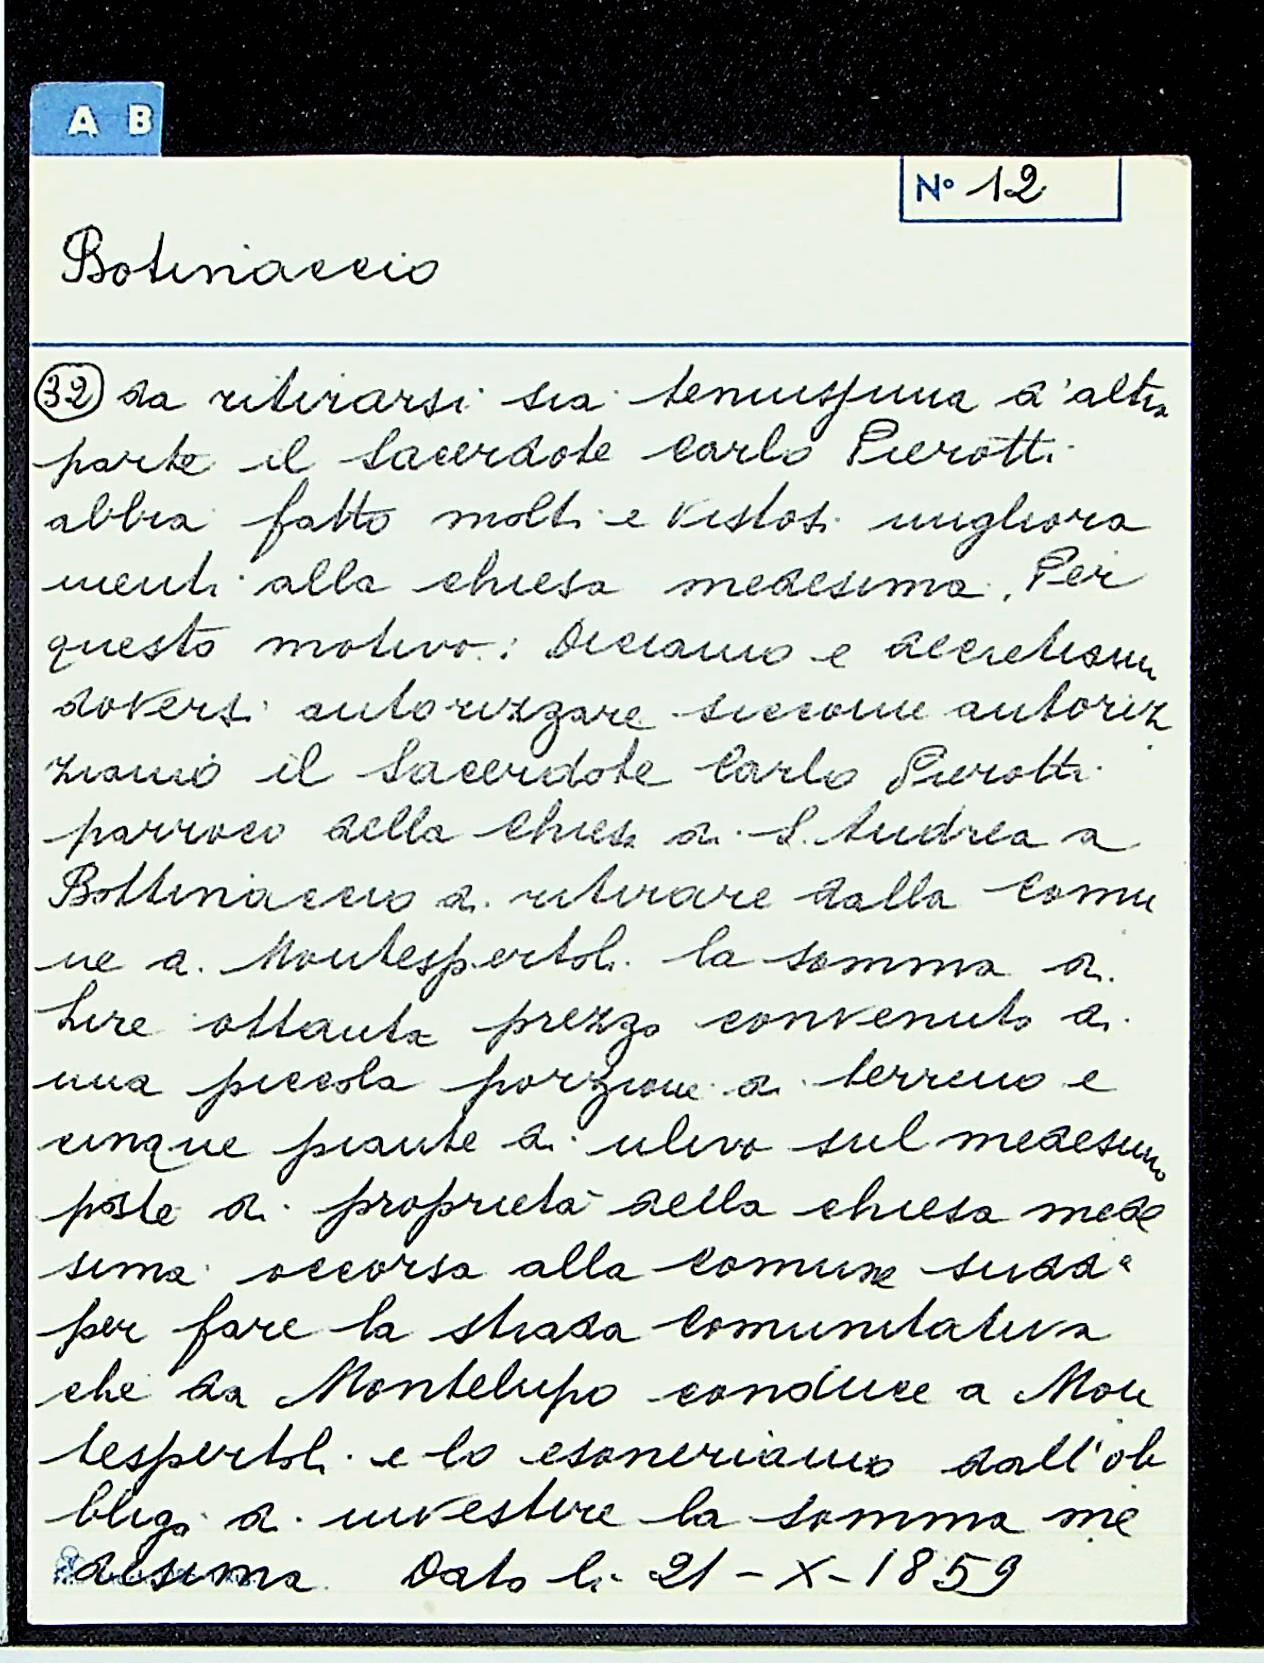 A B
N° 12
Botinaccio
32 da ritirarsi sia tenuissima d'altra
parte il Sacerdote Carlo Pierotti
abbia fatto molti e vistosi migliora
menti alla chiesa medesima. Per
questo motivo: Diciamo e decretiamo
doversi autorizzare siccome autoriz
ziamo il Sacerdote Carlo Pierotti
parroco della Chiesa di S. Andrea a
Bottinaccio di ritirare dalla Comu
ne di Montespertoli la somma di
Lire ottanta prezzo convenuto di
una piccola porzione di terreno e
cinque piante di ulivo sul medesimo
poste di proprietà della chiesa mede
sima occorsa alla Comune sudda
per fare la strada Comunitativa
che da Montelupo conduce a Mon
tespertoli e lo esoneriamo dall'ob
bligo di investire la somma me
desima Dato li 21-X-1859